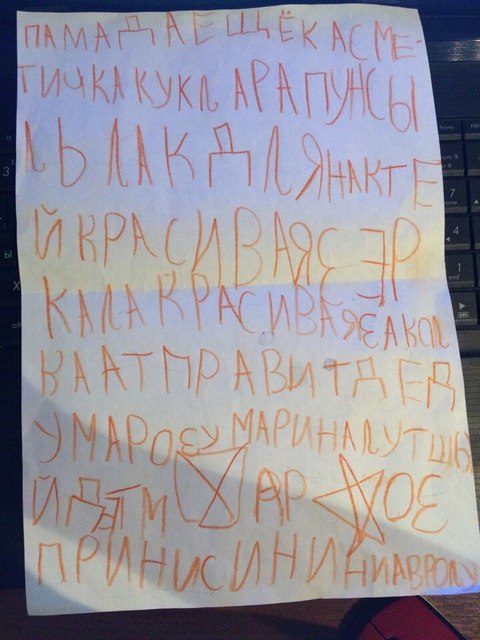 ПАМАДАЕЩЁКАСМЕ-
ТИЧКАКУКЛАРАПУНСЫ
ЛЬЛАКДЛЯНАКТЕ
ЙКРАСИВАЯЗЭР
КАЛАКРАСИВАЯЗАКОЛ
КААТПРАВИТДЕД
УМАРОЗУМАРИНАЛУТШЫ
ЙДАТМ АР ОЗ
ПРИНИСИНИННИАВРОЛУ